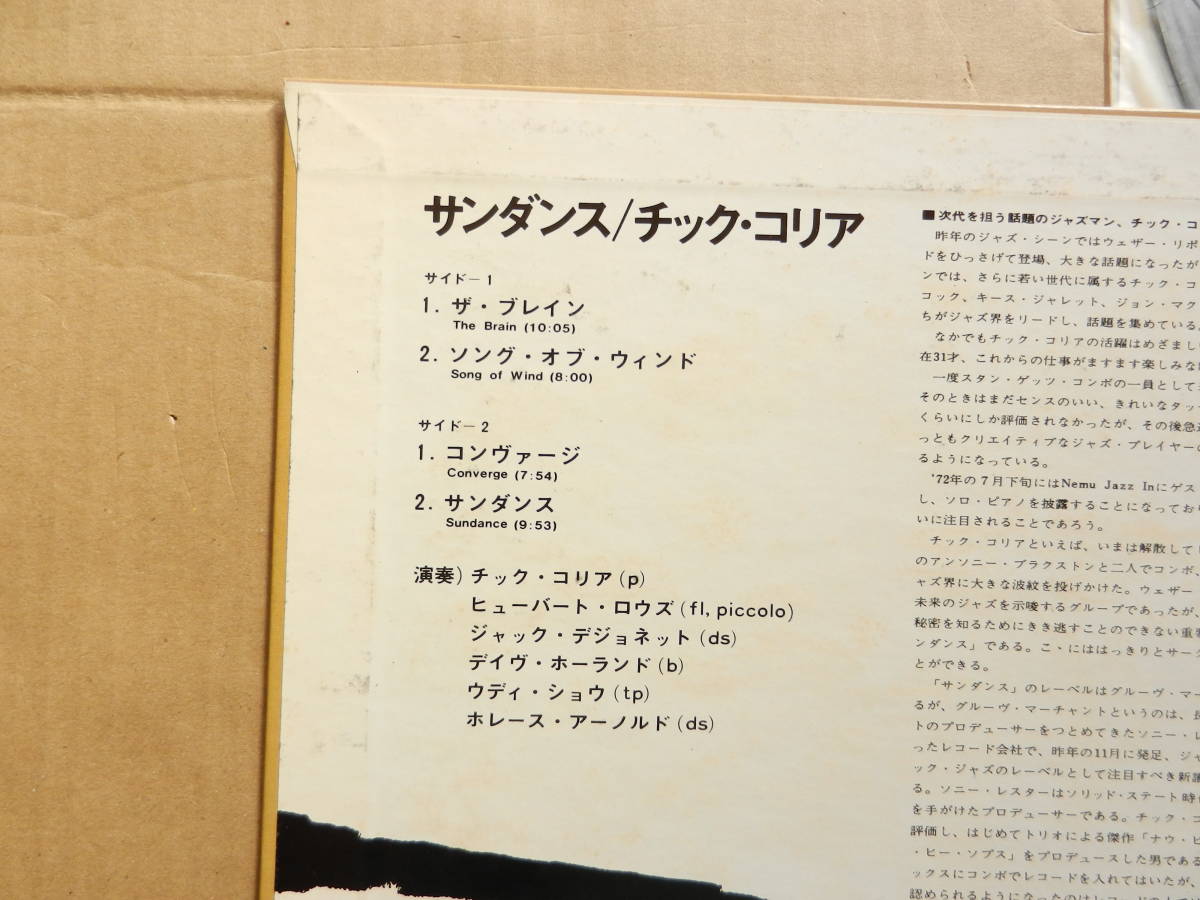 サンダンス/チック・コリア
サイド－1
1. ザ・ブレイン
The Brain (10:05)
2. ソング・オブ・ウィンド
Song of Wind (8:00)
サイド－2
1. コンヴァージ
Converge (7:54)
2. サンダンス
Sundance (9:53)
演奏) チック・コリア (p)
ヒューバート・ロウズ (fl, piccolo)
ジャック・デジョネット (ds)
デイヴ・ホーランド (b)
ウディ・ショウ (tp)
ホレース・アーノルド (ds)
■次代を担う話題のジャズマン、チック・コ
昨年のジャズ・シーンではウェザー・リポ
ドをひっさげて登場、大きな話題になったが
ンでは、さらに若い世代に属するチック・コ
コック、キース・ジャレット、ジョン・マク
ちがジャズ界をリードし、話題を集めている。
なかでもチック・コリアの活躍はめざまし
在31才、これからの仕事がますます楽しみな
一度スタン・ゲッツ・コンボの一員として
そのときはまだセンスのいい、きれいなタッ
くらいにしか評価されなかったが、その後急
っともクリエイティブなジャズ・プレイヤーの
るようになっている。
'72年の7月下旬にはNemu Jazz Inにゲス
し、ソロ・ピアノを披露することになってお
いに注目されることであろう。
チック・コリアといえば、いまは解散して
のアンソニー・ブラクストンと二人でコンボ、
ャズ界に大きな波紋を投げかけた。ウェザー
未来のジャズを示唆するグループであったが、
秘密を知るためにきき逃すことのできない重
ンダンス」である。こゝにははっきりとサーク
とができる。
「サンダンス」のレーベルはグルーヴ・マー
るが、グルーヴ・マーチャントというのは、
トのプロデューサーをつとめてきたソニー・レ
ったレコード会社で、昨年の11月に発足、ジャ
ック・ジャズのレーベルとして注目すべき新
る。ソニー・レスターはソリッド・ステート時
を手がけたプロデューサーである。チック・コ
評価し、はじめてトリオによる傑作「ナウ・ヒ
・ヒー・ソブス」をプロデュースした男である
ックスにコンボでレコードを入れてはいたが、
認められるようになったのは